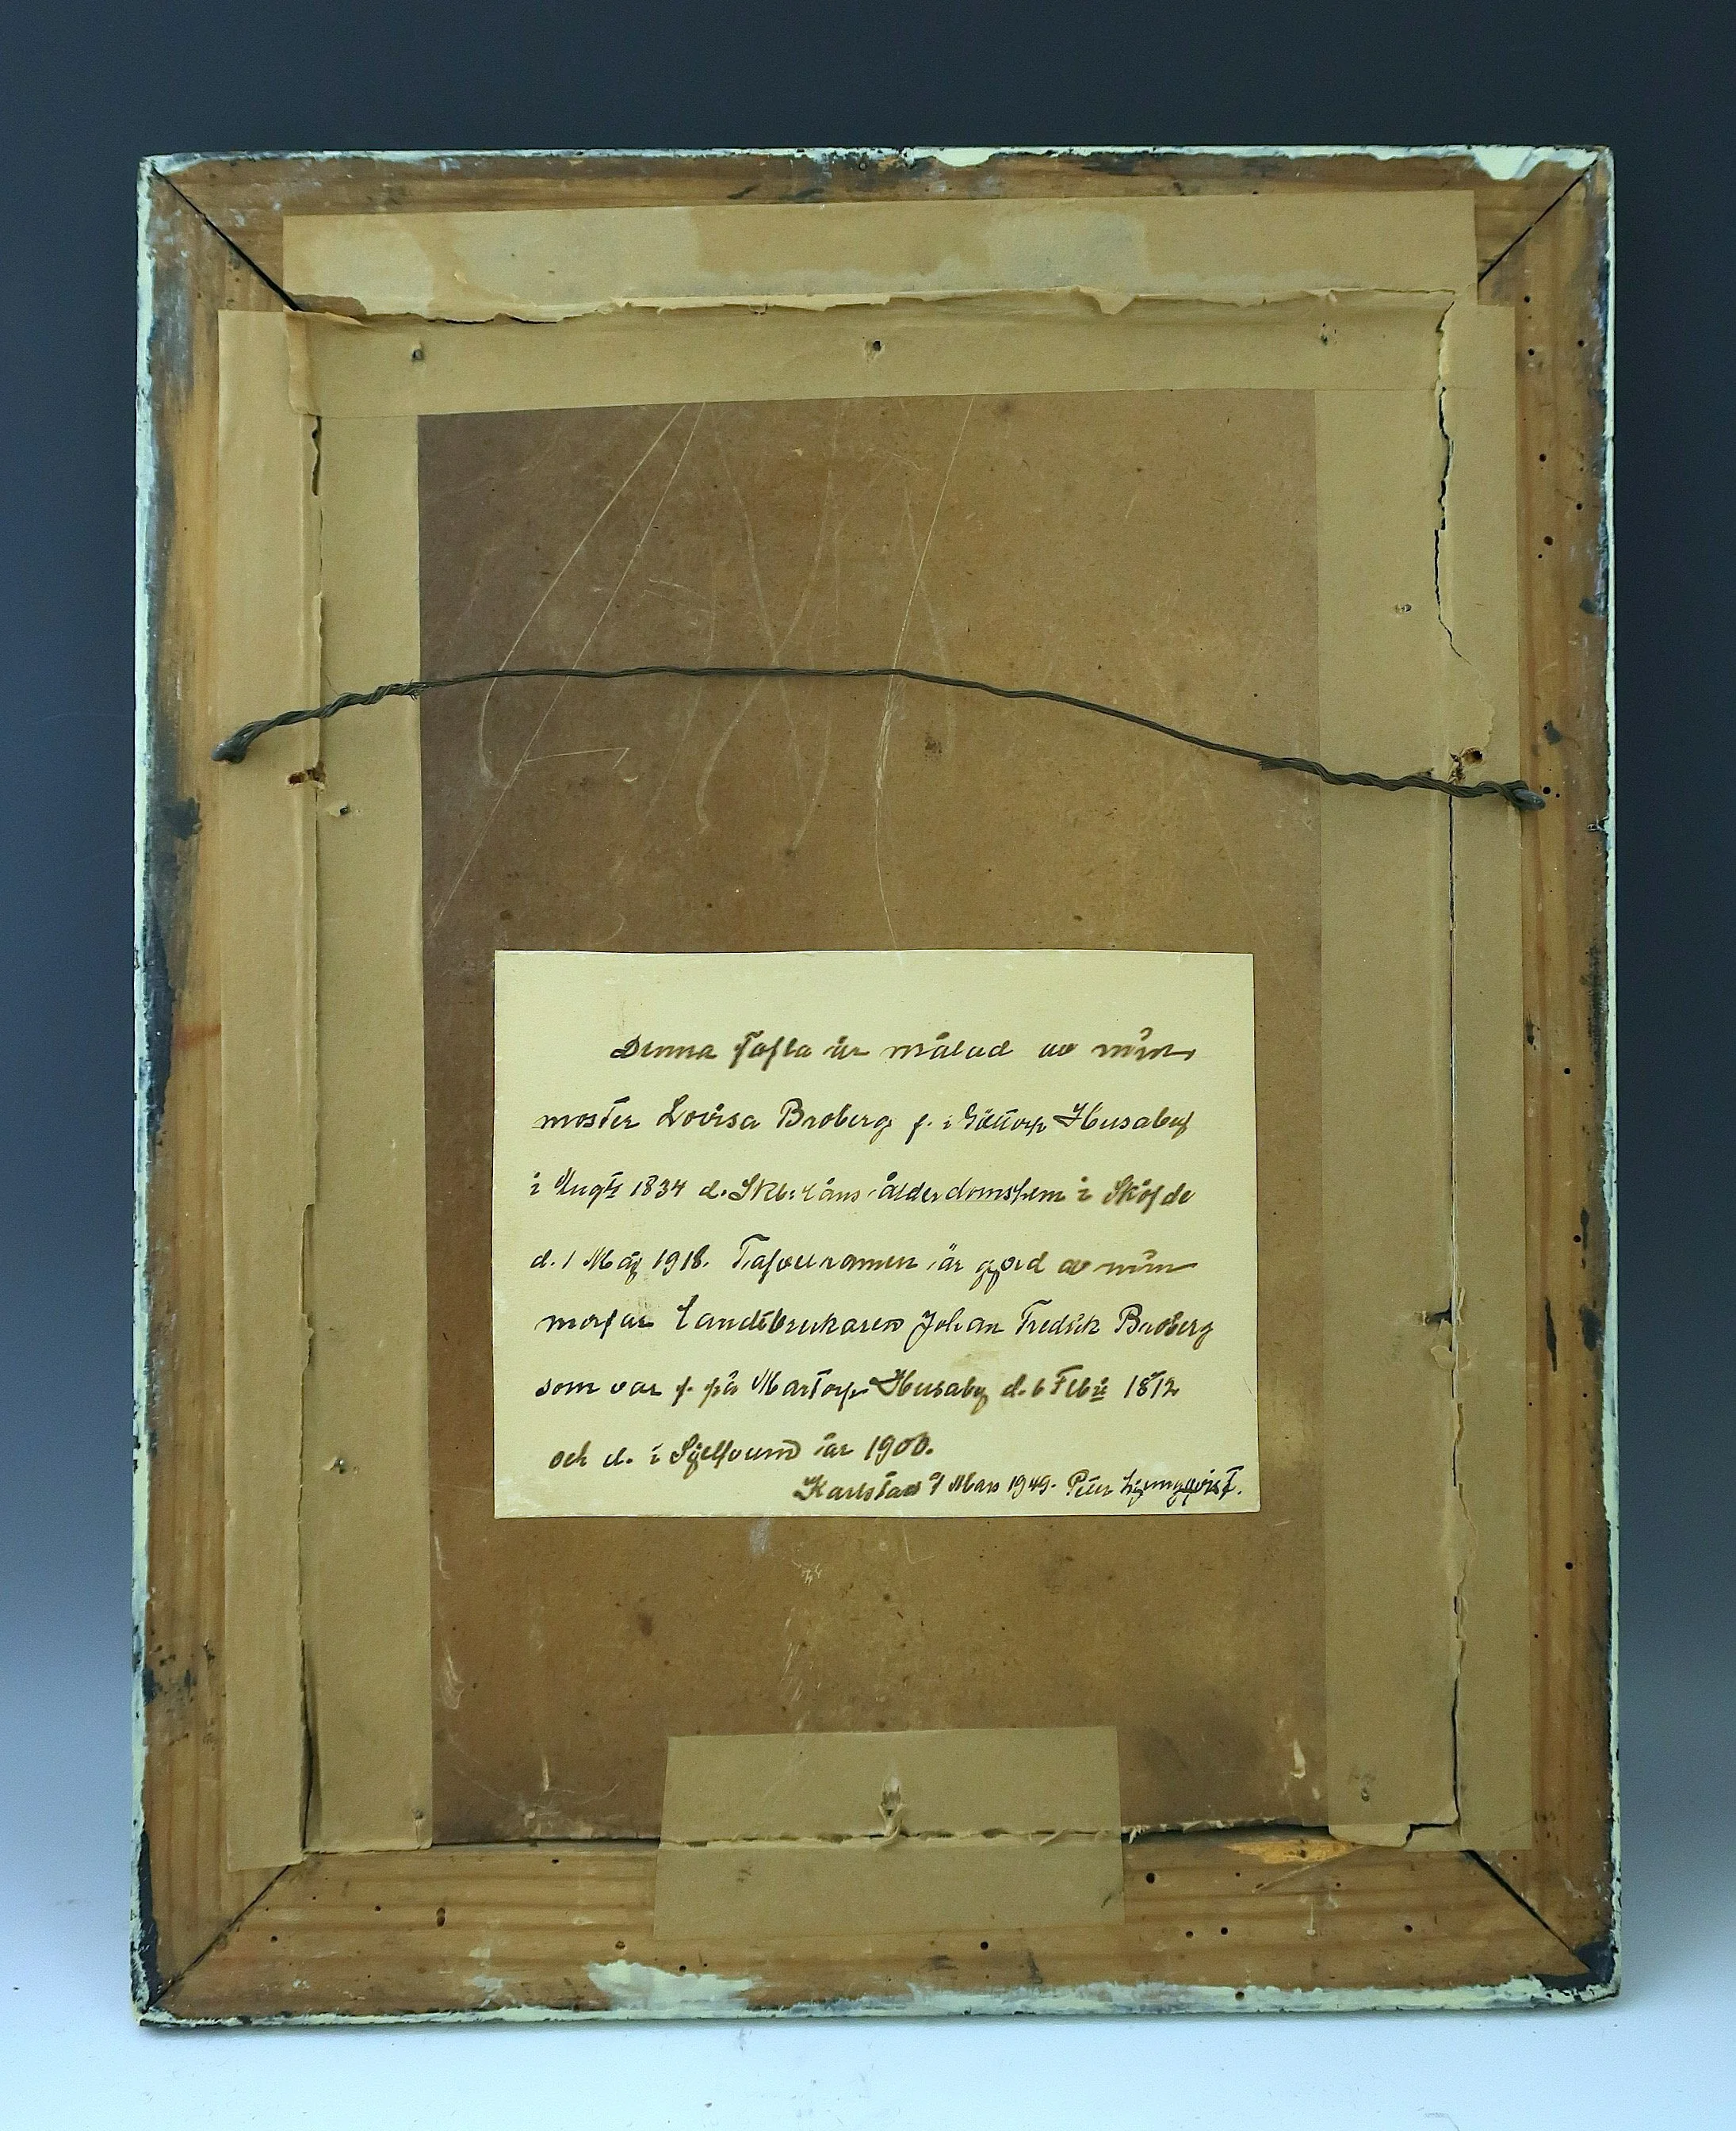 Denna Tafla är målad av min
moster Lovisa Broberg f. i Husaby
i Augti 1834 d. Skb. läns ålderdomshem i Sköfde
d. 1 Maj 1918. Tafvelramen är gjord av min
morfar Landtbrukaren Johan Fredrik Broberg
som var f. på Martorp Husaby d. 6 Feb. 1812
och d. i år 1900.
Karlstad Mars 1949. Peter Ljungqvist.